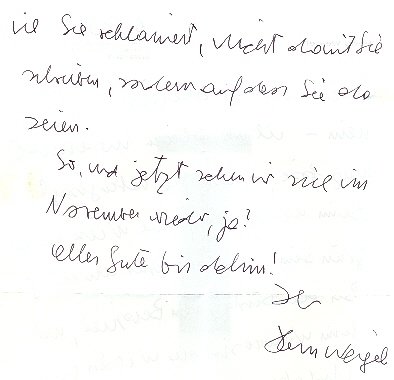 wie Sie reklamiert, nicht damit Sie
schreiben, sondern auf dass Sie da
seien.
So, und jetzt sehen wir uns im
November wieder, ja?
Alles Gute bis dahin!
Ihr
Hans Weigel